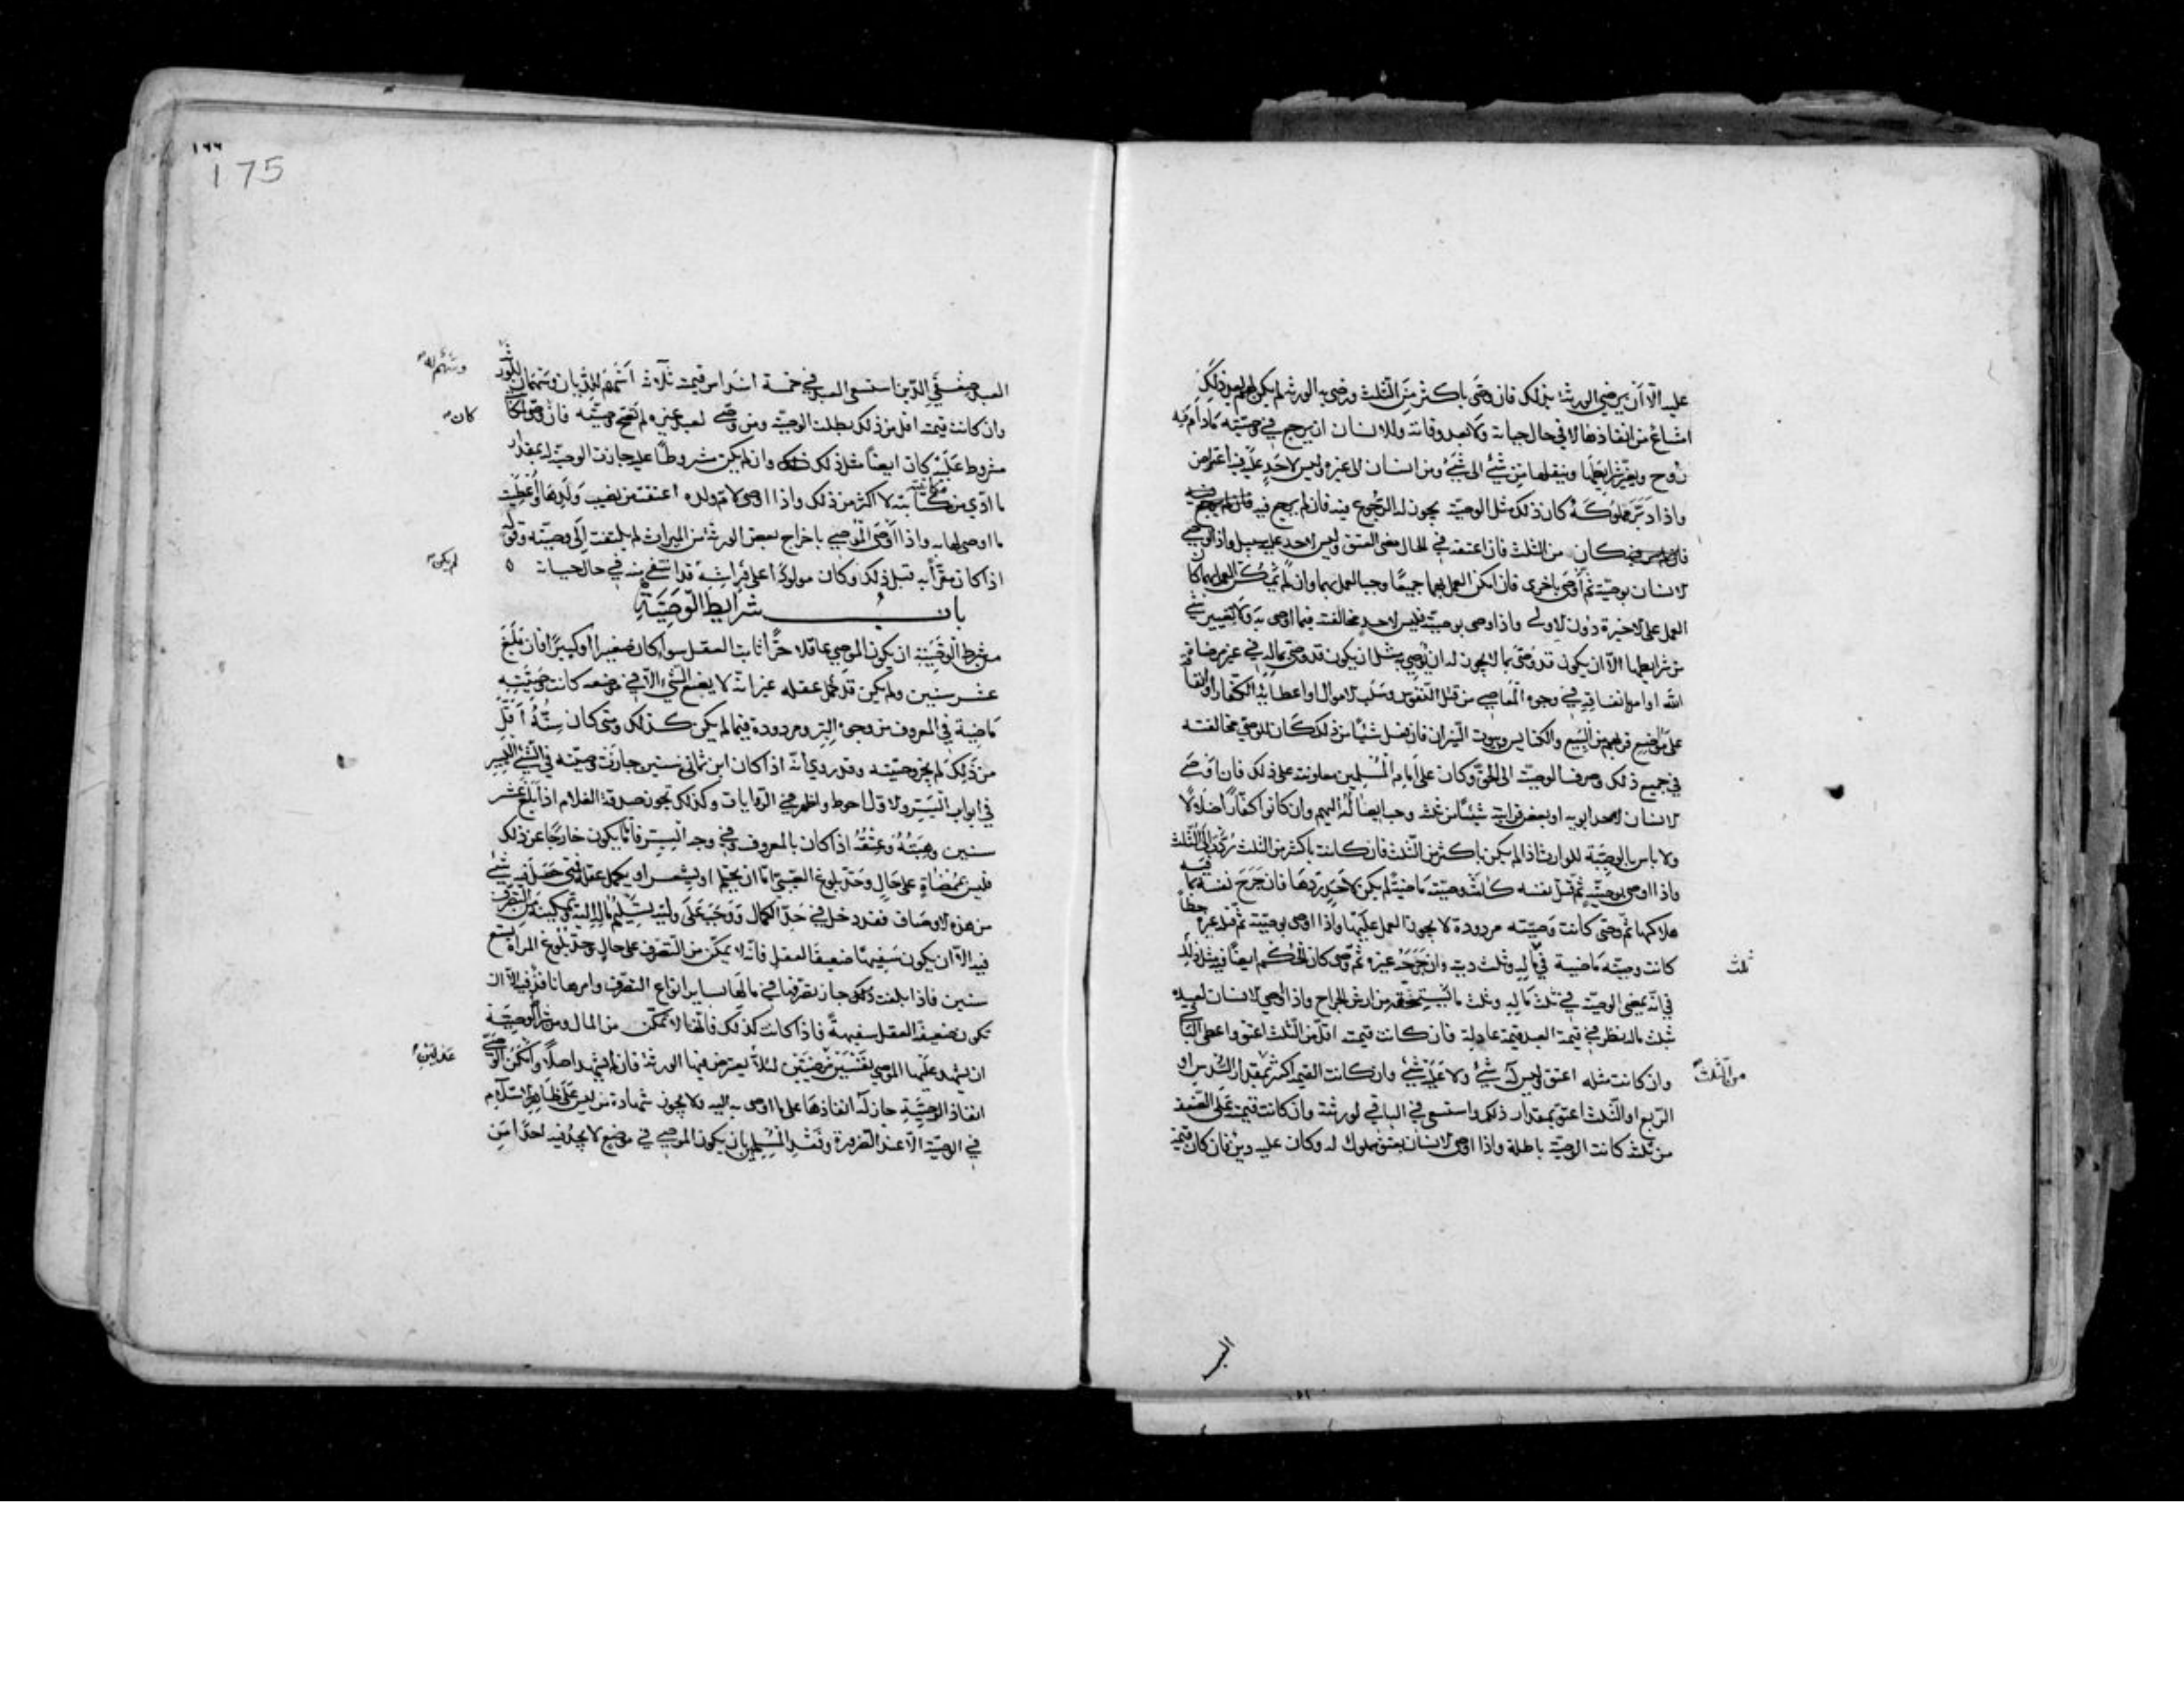 عليه الا ان يرضى الورثة بذلك فان وصى باكثر من الثلث ورضى به الورثة لم يكن لهم بعد ذلك
امتناع من انفاذها لا في حال حياته ولا بعد وفاته وللانسان ان يرجع في وصيته ما دام فيه
روح ويغير شرايطها وينقلها من شئ الى شئ ومن انسان الى غيره وليس لاحد عليه فيه اعتراض
واذا دبر مملوكه كان ذلك مثل الوصية يجوز له الرجوع فيه فان لم يرجع فيه
كان من الثلث فان اعتقه في الحال مضى العتق وليس لاحد عليه سبيل واذا اوصى
لانسان بوصية ثم اوصى باخرى فان امكن العمل بهما جميعا وجب العمل بهما وان لم يمكن العمل بهما كان
العمل على الاخيرة دون الاولى واذا اوصى بوصية فليس لاحد مخالفته فيما اوصى به ولا تغيير شئ
من شرايطها الا ان يكون قد وصى بما لا يجوز له ان يوصي به مثل ان يكون قد وصى بماله في غير مرضاة
الله او امر بانفاقه في وجوه المعاصي من قتل النفوس وسلب الاموال او اعطائه الكفار او انفاقه
على مواضع قربهم من البيع والكنايس وبيوت النيران فان فعل شيئا من ذلك كان للوصي مخالفته
في جميع ذلك وصرف الوصية الى الحق وكان على امام المسلمين معاونته على ذلك فان اوصى
الانسان لاحد ابويه او بعض قرابته شيئا من ثلثه وجب ايصاله اليهم وان كانوا كفارا ضلالا
ولا باس بالوصية للوارث اذا لم يكن باكثر من الثلث فان كانت باكثر من الثلث ردت الى الثلث
واذا اوصى بوصية ثم قتل نفسه كانت وصيته ماضية لم يكن لاحد ردها فان جرح نفسه بما فيه
هلاكها ثم وصى كانت وصيته مردودة لا يجوز العمل عليها واذا اوصى بوصية ثم قتله غيره خطأ
كانت وصيته ماضية في ماله وثلث ديته وان جرحه غيره ثم وصى كان الحكم ايضا فيه مثل ذلك
ثلث
في انه يمضي الوصية في ثلث ماله وثلث ما يستحقه من ارش الجراح واذا اوصى الانسان لعبده
بثلث ماله نظر في قيمة العبد قيمة عادلة فان كانت قيمته اقل من الثلث اعتق واعطى الباقي
وان كانت مثله اعتق وليس له شئ ولا عليه شئ وان كانت القيمة اكثر بمقدار السدس او
من الثلث
الربع او الثلث اعتق بمقدار ذلك واستسعى في الباقي لورثته وان كانت قيمته على الضعف
من ثلثه كانت الوصية باطلة واذا اوصى الانسان بعتق مملوك له وكان عليه دين فان كان قيمة
١٦٦
175
العبد ضعفي الدين استسعى العبد في خمسة اسداس قيمته ثلاثة اسهم للديان وسهمان للورثة
وسهم له
وان كانت قيمته اقل من ذلك بطلت الوصية ومن وصى لعبد غيره لم تصح وصيته فان
كان
مشروطا عليه كان ايضا مثل ذلك وان لم يكن مشروطا عليه جازت الوصية له بمقدار
ما ادى من مكاتبته لا اكثر من ذلك واذا اوصى لام ولده اعتقت من نصيب ولدها واعطيت
ما اوصى لها به واذا اوصى الموصي باخراج بعض الورثة من الميراث لم يلتفت الى وصيته وقوله
اذا كان مقرا به قبل ذلك وكان مولودا على فراشه قد انتفى منه في حال حياته ٥
لم يكن
باب شرايط الوصية
من شرط الوصية ان يكون الموصي عاقلا حرا ثابت العقل سوا كان صغيرا او كبيرا فان بلغ
عشر سنين ولم يكن قد كمل عقله غير انه لا يضع الشئ الا في موضعه كانت وصيته
ماضية في المعروف من وجوه البر ومردودة فيما لم يكن كذلك ومتى كان سنه اقل
من ذلك لم يجز وصيته وقد روي انه اذا كان ابن ثماني سنين جازت وصيته في الشئ اليسير
في ابواب البر والاول احوط واظهر في الروايات وكذلك تجوز صدقة الغلام اذا بلغ عشر
سنين وهبته وعتقه اذا كان بالمعروف وفي وجه البر فاما يكون خارجا عن ذلك
فليس بممضاة على حال وحد بلوغ الصبي اما ان يحتلم او يشعر او يكمل عقله فمتى حصل فيه شئ
من هذه الاوصاف فقد دخل في حد الكمال ووجب على وليه تسليم ماله اليه وتمكينه من التصرف
فيه الا ان يكون سفيها ضعيف العقل فانه لا يمكن من التصرف على حال وحد بلوغ المراة تسع
سنين فاذا بلغت ذلك جاز تصرفها في مالها بساير انواع التصرف وامرها نافذ فيه الا ان
تكون ضعيفة العقل سفيهة فاذا كانت كذلك فانها لا تمكن من المال ومن شرط الوصية
ان يشهد عليها الموصي نفسين مرضيين لئلا يعترض فيها الورثة فان لم يشهد اصلا وامكن الوصي
عدلين
انفاذ الوصية جاز له انفاذها على ما اوصى به اليه ولا يجوز شهادة من ليس على ظاهر الاسلام
في الوصية الا عند الضرورة وفقد المسلمين بان يكون الموصي في موضع لا يجد فيه احدا من